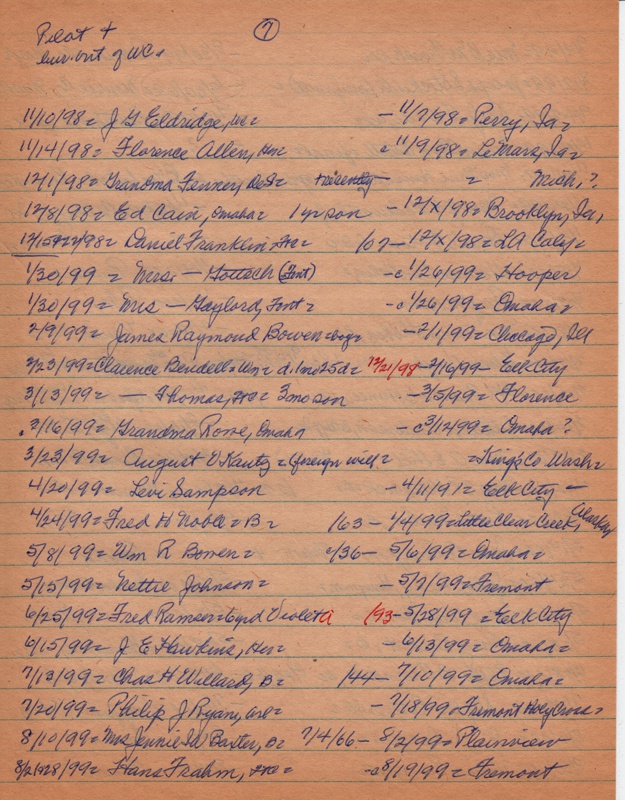 7
Pilot +
Cur. out of WC.
11/10/98 = J G Eldridge, = - 11/7/98 = Perry, Ia =
11/14/98 = Florence Allen, Hn = c 11/9/98 = LeMars, Ia =
12/1/98 = Grandma Fenner, DeS = recently = Mich, ?
12/8/98 = Ed Cain, Omaha = 1 yr son - 12/X/98 = Brooklyn, Ia,
12/15 /98 = Daniel Franklin, = /07 - 12/X/98 = LA Caly =
1/30/99 = Mrs. - Gottsch (Font) - c 1/26/99 = Hooper
1/30/99 = Mrs - Gaylord, Font = - c 1/26/99 = Omaha =
2/9/99 = James Raymond Bowen = - 2/1/99 = Chicago, Ill
2/23/99 = Clarence Bendell = Wn = d. 1mo25d = 12/21/98 - 2/16/99 - Elk City
3/13/99 = - Thomas, = 3mo son - 3/5/99 = Florence
3/16/99 = Grandma Rowe, Omaha - c 3/12/99 = Omaha ?
3/23/99 = August V Kautz = (foreign will = = King's Co Wash =
4/20/99 = Levi Sampson - 4/11/91 = Elk City -
4/24/99 = Fred H Noble = B = /63 - 1/4/99 = Little Clear Creek, Alaska
5/8/99 = Wm R Bowen = /36 - 5/6/99 = Omaha =
5/15/99 = Nettie Johnson = - 5/7/99 = Fremont
6/25/99 = Fred Ramser = 6yrd Violeta /93 - 5/28/99 = Elk City
6/15/99 = J E Hawkins, Hn = - 6/13/99 = Omaha =
7/13/99 = Chas H Willard, B = /44 - 7/10/99 = Omaha =
7/20/99 = Philip J Ryan, = - 7/18/99 Fremont Holy Cross =
8/10/99 = Mrs Jennie W Baxter, B = 7/4/66 - 8/2/99 = Plainview
8/2 /99 = Hans Frahm, = - c 8/19/99 = Fremont